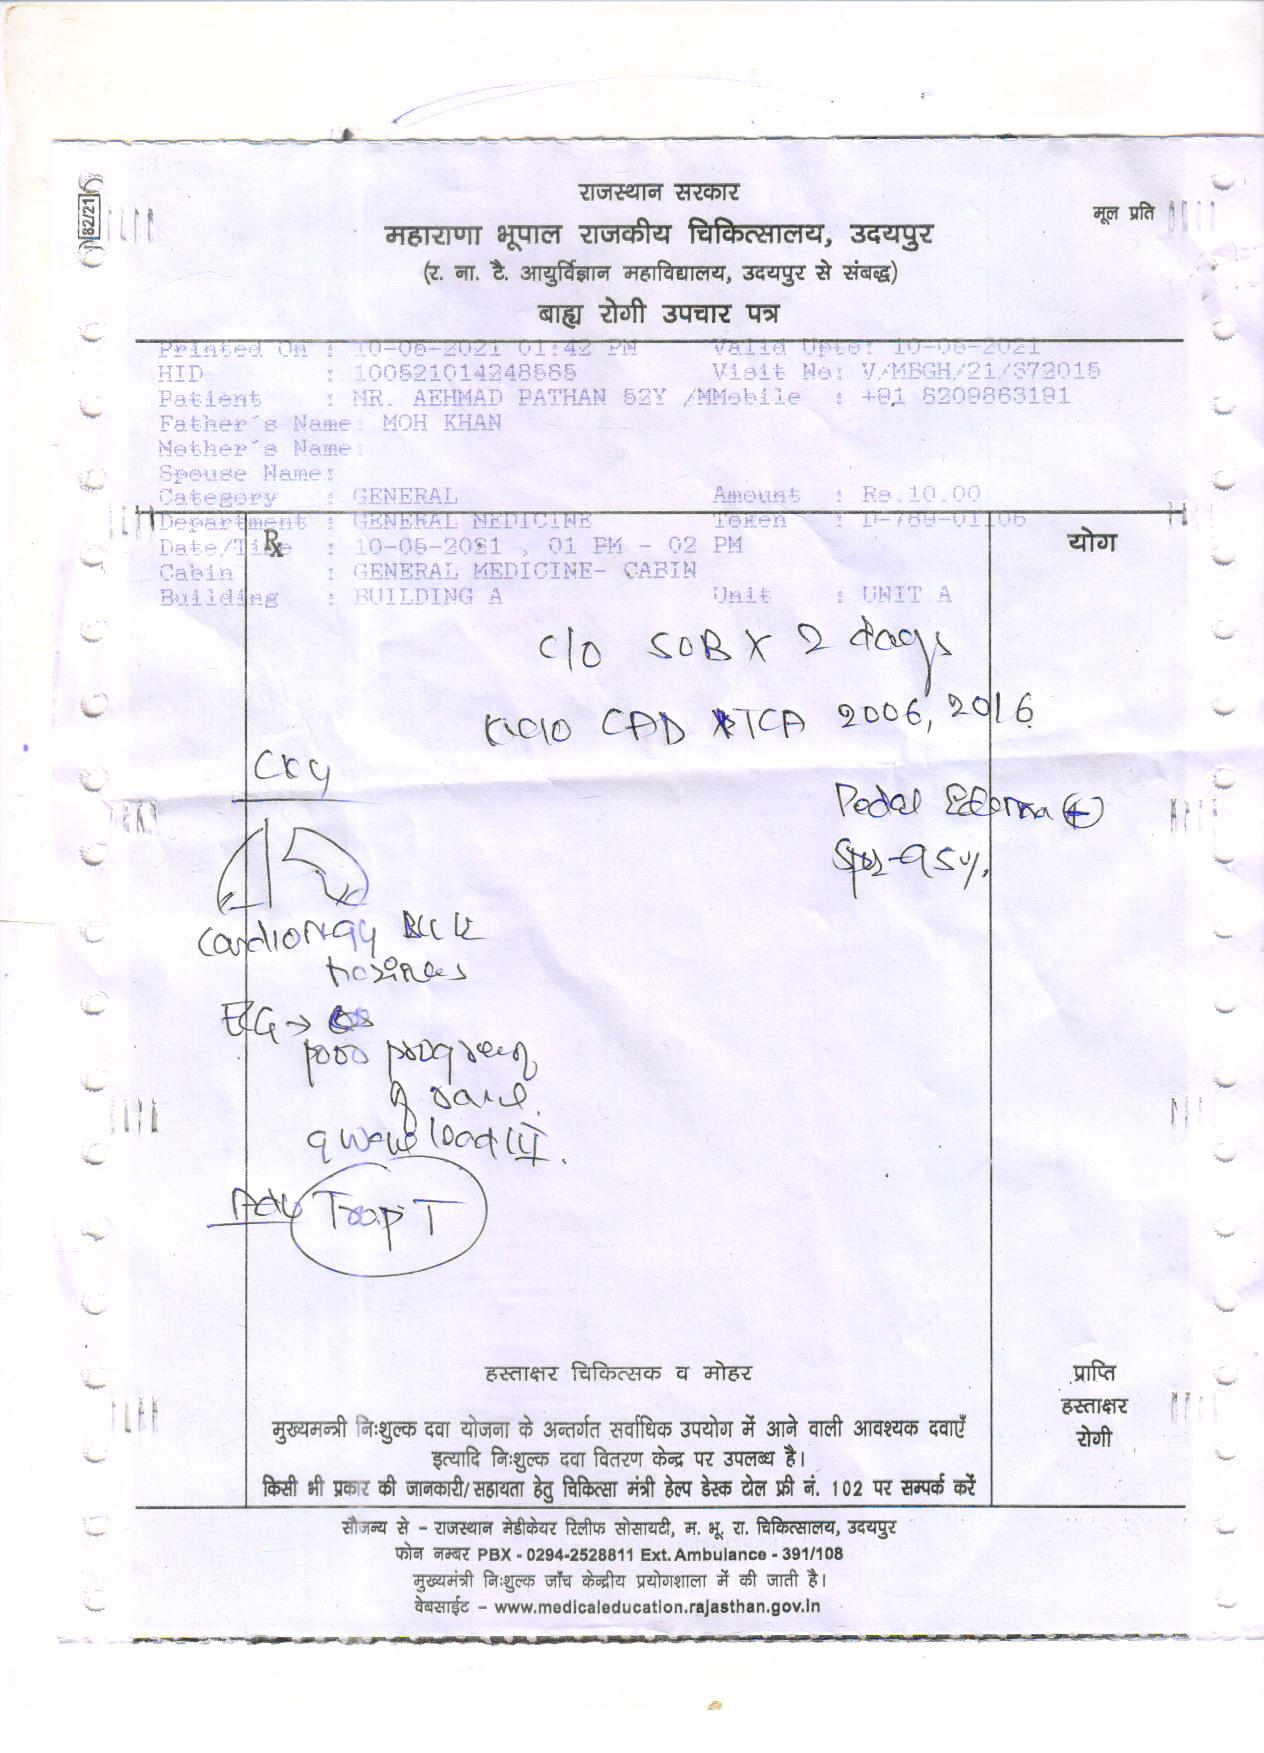 82/21
राजस्थान सरकार
मूल प्रति
महाराणा भूपाल राजकीय चिकित्सालय, उदयपुर
(र. ना. टै. आयुर्विज्ञान महाविद्यालय, उदयपुर से संबद्ध)
बाह्य रोगी उपचार पत्र
Printed On : 10-05-2021 01:42 PM Valid Upto: 10-05-2021
HID : 100521014248585 Visit No: V/MBGH/21/372015
Patient : MR. AEHMAD PATHAN 52Y /MMobile : +91 8209863191
Father's Name: MOH KHAN
Mother's Name:
Spouse Name:
Category : GENERAL Amount : Rs.10.00
Department : GENERAL MEDICINE Token : D-789-01106
Rx योग
Date/Time : 10-05-2021 , 01 PM - 02 PM
Cabin : GENERAL MEDICINE- CABIN
Building : BUILDING A Unit : UNIT A
C/O SOB X 2 days
K/C/O CAD PTCA 2006, 2016
Pedal Edema (+)
SpO2-95%.
ECG →
poor progression
of wave.
q wave lead III.
Adv Trop T
हस्ताक्षर चिकित्सक व मोहर
प्राप्ति
हस्ताक्षर
रोगी
मुख्यमन्त्री निःशुल्क दवा योजना के अन्तर्गत सर्वाधिक उपयोग में आने वाली आवश्यक दवाएँ
इत्यादि निःशुल्क दवा वितरण केन्द्र पर उपलब्ध है।
किसी भी प्रकार की जानकारी/सहायता हेतु चिकित्सा मंत्री हेल्प डेस्क टोल फ्री नं. 102 पर सम्पर्क करें
सौजन्य से – राजस्थान मेडीकेयर रिलीफ सोसायटी, म. भू. रा. चिकित्सालय, उदयपुर
फोन नम्बर PBX - 0294-2528811 Ext. Ambulance - 391/108
मुख्यमंत्री निःशुल्क जाँच केन्द्रीय प्रयोगशाला में की जाती है।
वेबसाईट – www.medicaleducation.rajasthan.gov.in